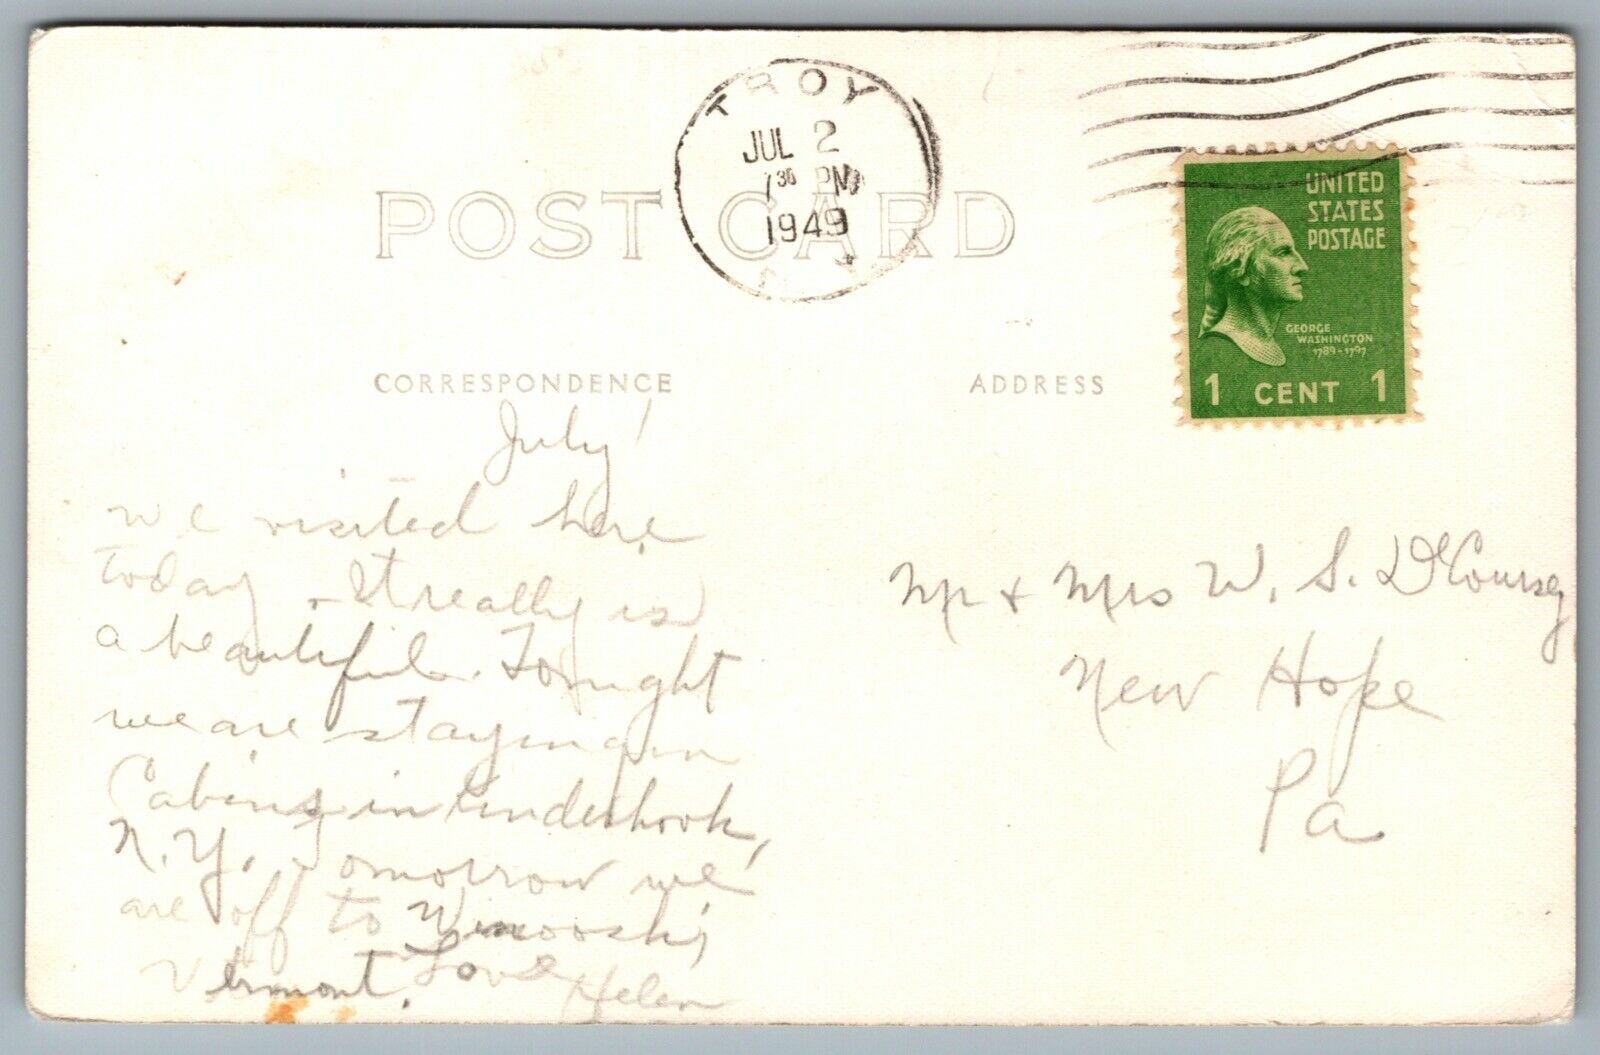 TROY
JUL 2
7 30 PM
1949
N.
UNITED
STATES
POSTAGE
GEORGE
WASHINGTON
1789-1797
1 CENT 1
POST CARD
CORRESPONDENCE
July 1
we visited here
today. It really is
a beautiful. Tonight
we are staying in
Cabins in Kinderhook,
N.Y. Tomorrow we
are off to Winooski,
Vermont. Love
Helen
ADDRESS
Mr + Mrs W. S. DeCoursey
New Hope
Pa